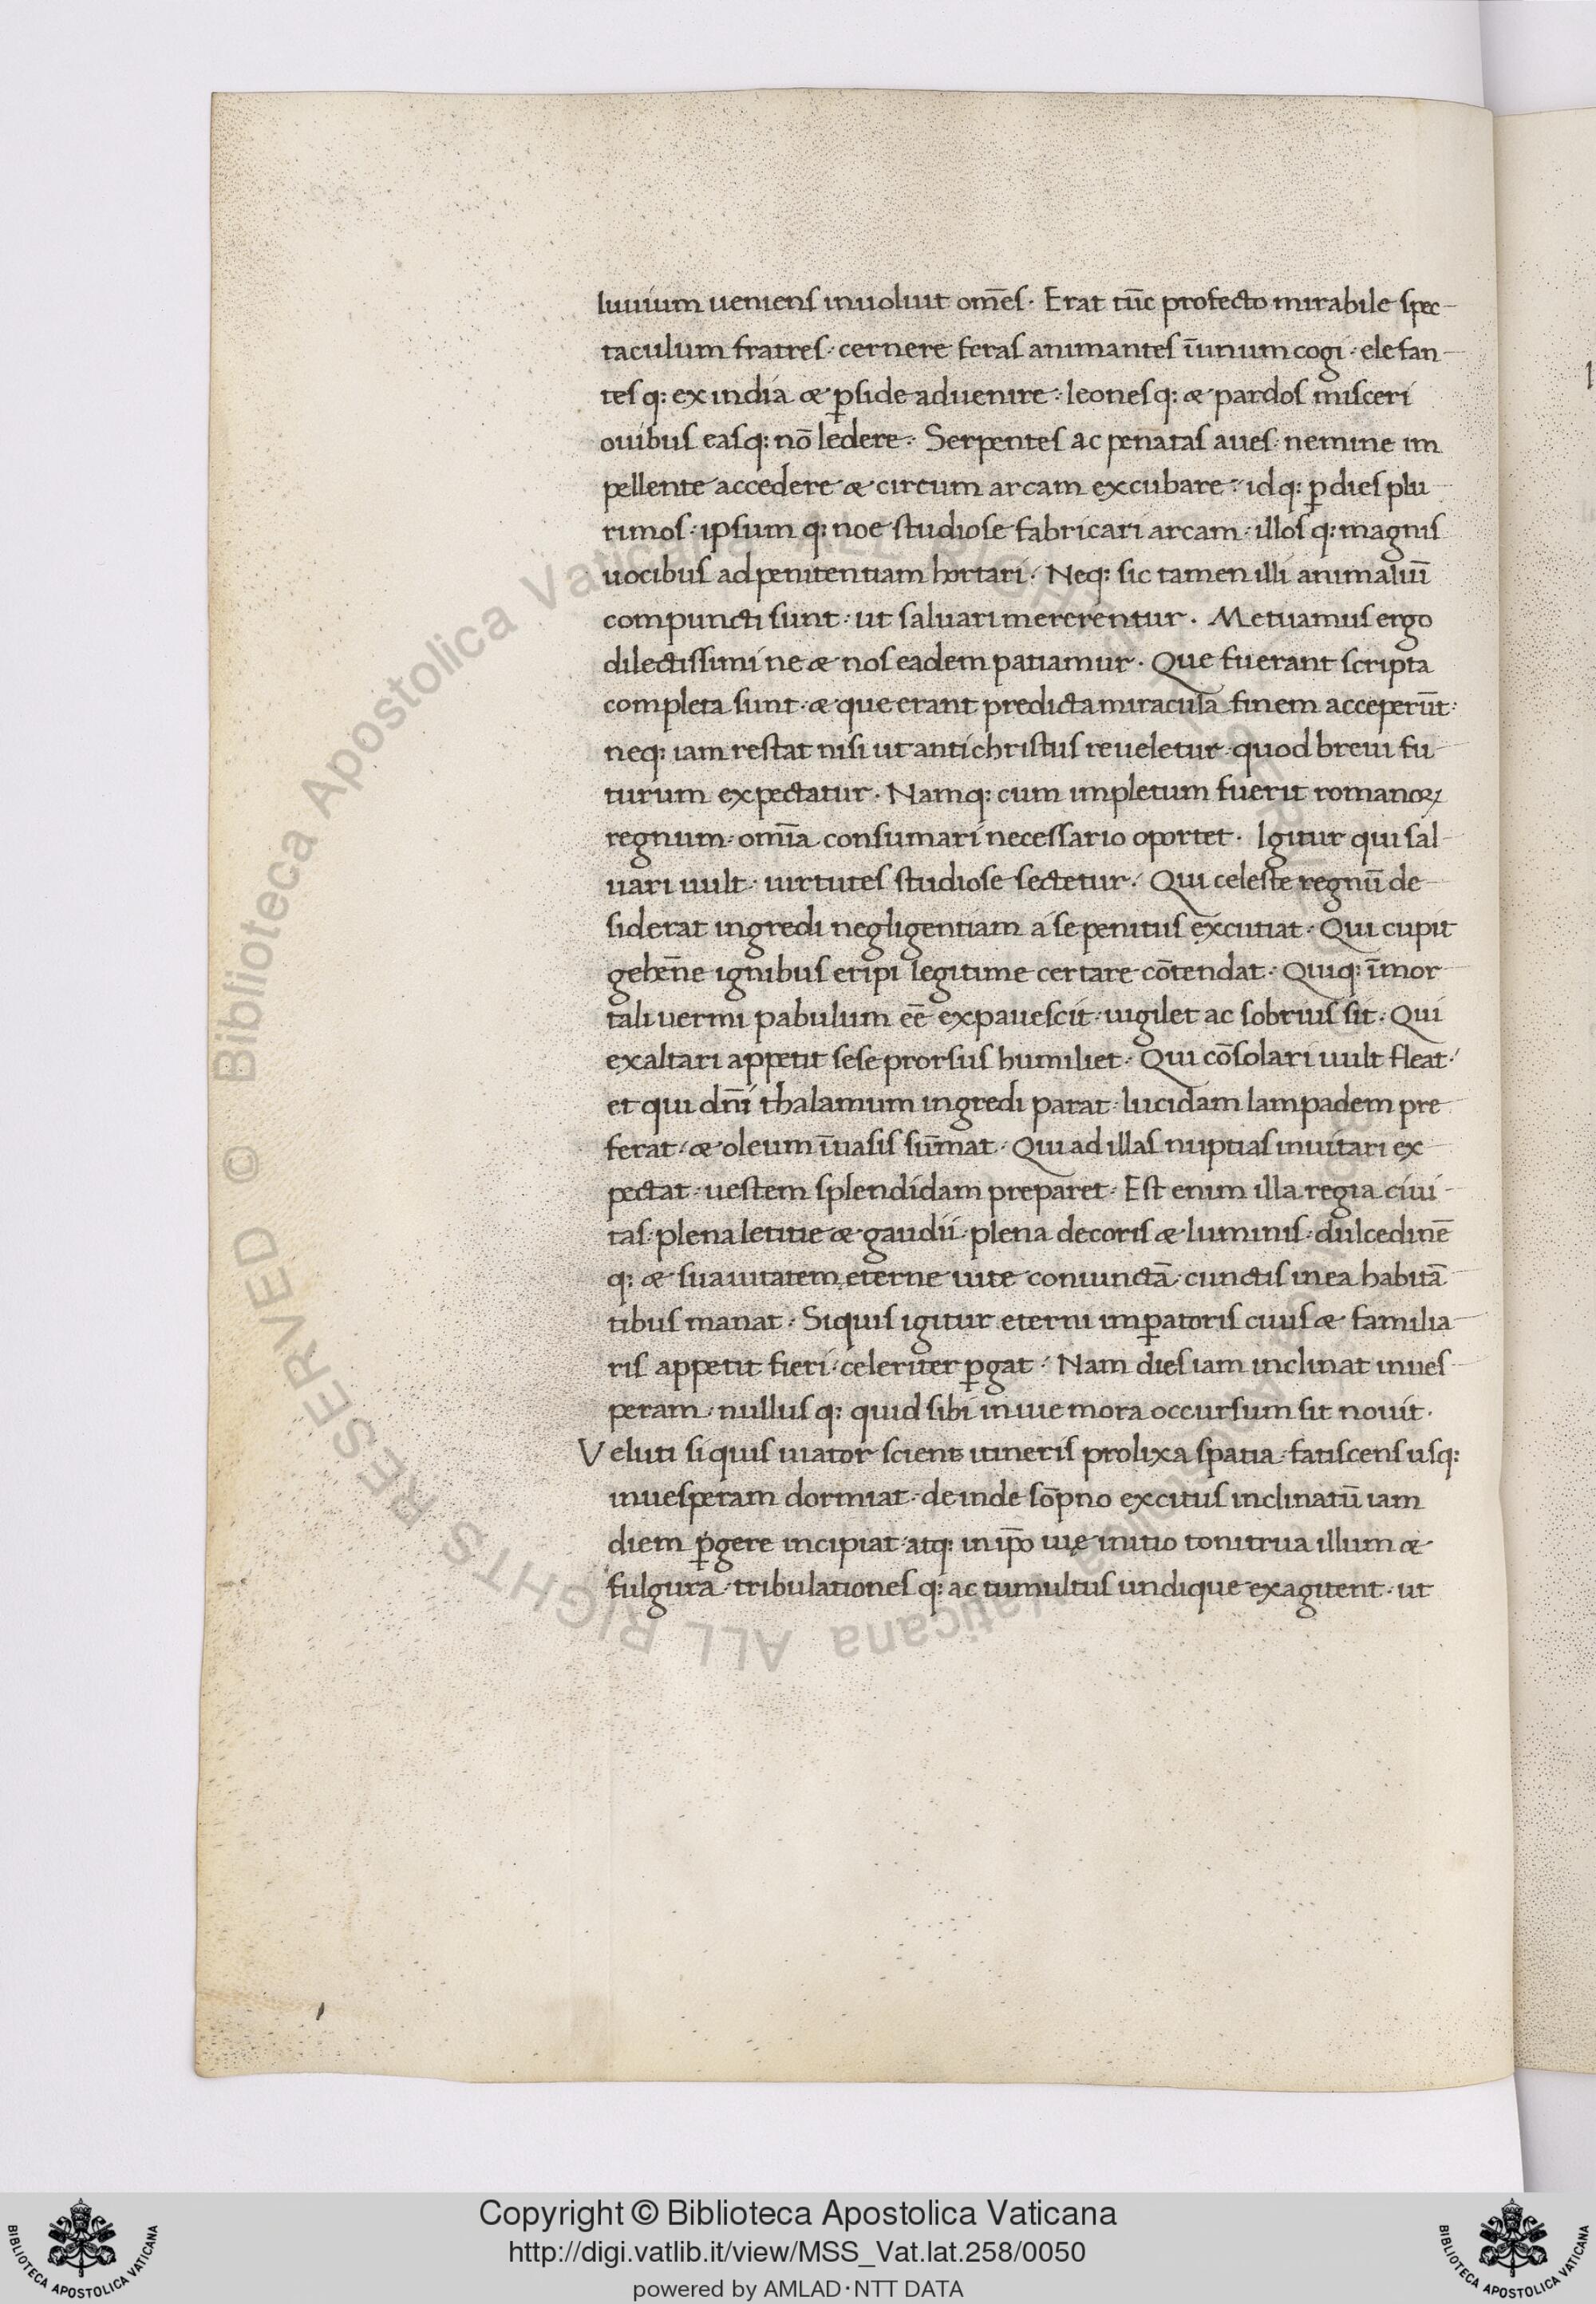 luuium ueniens inuoluit om̄es · Erat tūc profecto mirabile spec-
taculum fratres · cernere feras animantes īunum cogi · elefan-
tes q: ex india & p̱side aduenire · leones q: & pardos misceri
ouibus eas q: nō ledere · Serpentes ac penatas aues · nemine im
pellente accedere & circum arcam excubare · id q: p̱ dies plu
rimos · ipsum q: noe studiose fabricari arcam · illos q: magnis
uocibus ad penitentiam hortari · Neq: sic tamen illi animaliū
compuncti sunt · ut saluari mererentur · Metuamus ergo
dilectissimi ne & nos eadem patiamur · Que fuerant scripta
completa sunt · & que erant predicta miracula finem acceperūt ·
neq: iam restat nisi ut antichristus reueletur · quod breui fu-
turum expectatur · Namq: cum impletum fuerit romanoꝝ
regnum · om̄ia consumari necessario oportet · Igitur qui sal-
uari uult · uirtutes studiose sectetur · Qui celeste regnū de-
siderat ingredi negligentiam a se penitus excutiat · Qui cupit
gehen̄e ignibus eripi legitime certare cōtendat · Quiq: īmor
tali uermi pabulum ēe expauescit · uigilet ac sobrius sit · Qui
exaltari appetit sese prorsus humiliet · Qui cōsolari uult fleat ·
et qui dn̄i thalamum ingredi parat · lucidam lampadem pre
ferat · & oleum īuasis sūmat · Qui ad illas nuptias inuitari ex-
pectat · uestem splendidam preparet · Est enim illa regia ciui-
tas · plena letitie & gaudii · plena decoris & luminis · dulcedinē
q: & suauitatem eterne uite coniunctā · cunctis in ea habitā
tibus manat · Siquis igitur eterni imp̱atoris ciuis & familia-
ris appetit fieri · celeriter p̱gat · Nam dies iam inclinat in ues-
peram · nullus q: quid sibi in uie mora occursum sit nouit ·
Veluti si quis uiator sciens itineris prolixa spatia · fatiscens usq:
in uesperam dormiat · deinde sōpno excitus inclinatū iam
diem p̱gere incipiat · atq: in ip̄o uię initio tonitrua illum &
fulgura · tribulationes q: ac tumultus undique exagitent · ut
Biblioteca Apostolica Vaticana ALL RIGHTS RESERVED ©
Copyright © Biblioteca Apostolica Vaticana
http://digi.vatlib.it/view/MSS_Vat.lat.258/0050
powered by AMLAD·NTT DATA
BIBLIOTECA APOSTOLICA VATICANA
BIBLIOTECA APOSTOLICA VATICANA